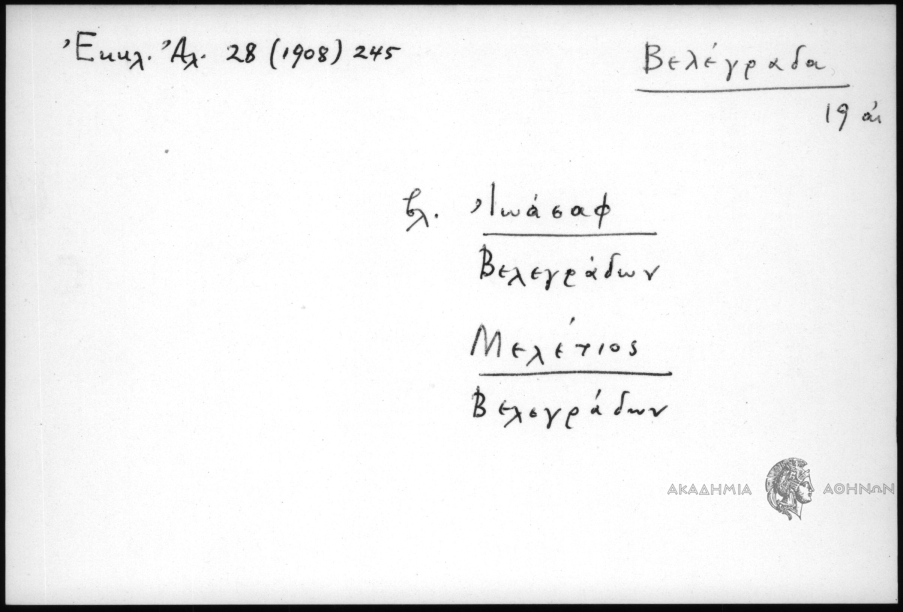 Ἐκκλ. Ἀλ. 28 (1908) 245
Βελέγραδα
19 αι
βλ. Ἰωάσαφ
Βελεγράδων
Μελέτιος
Βελεγράδων
ΑΚΑΔΗΜΙΑ ΑΘΗΝΩΝ